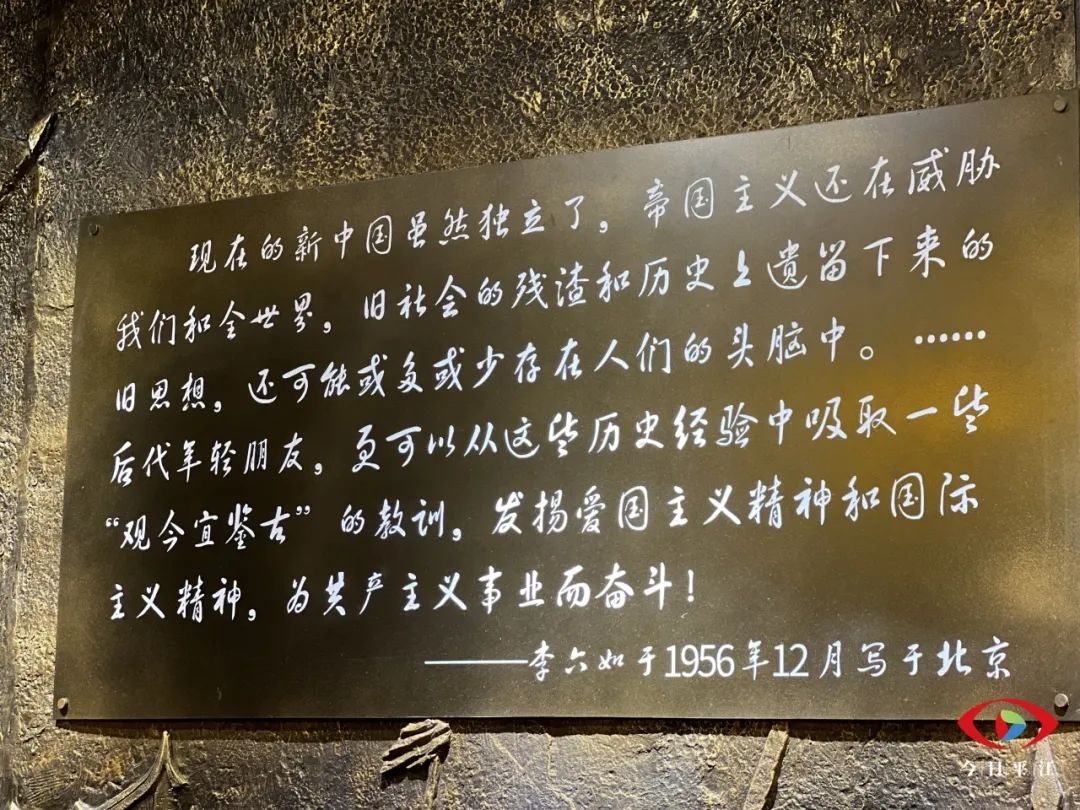 现在的新中国虽然独立了，帝国主义还在威胁
我们和全世界，旧社会的残渣和历史上遗留下来的
旧思想，还可能或多或少存在人们的头脑中。……
后代年轻朋友，更可以从这些历史经验中吸取一些
“观今宜鉴古”的教训，发扬爱国主义精神和国际
主义精神，为共产主义事业而奋斗！
———李六如于1956年12月写于北京
今日平江